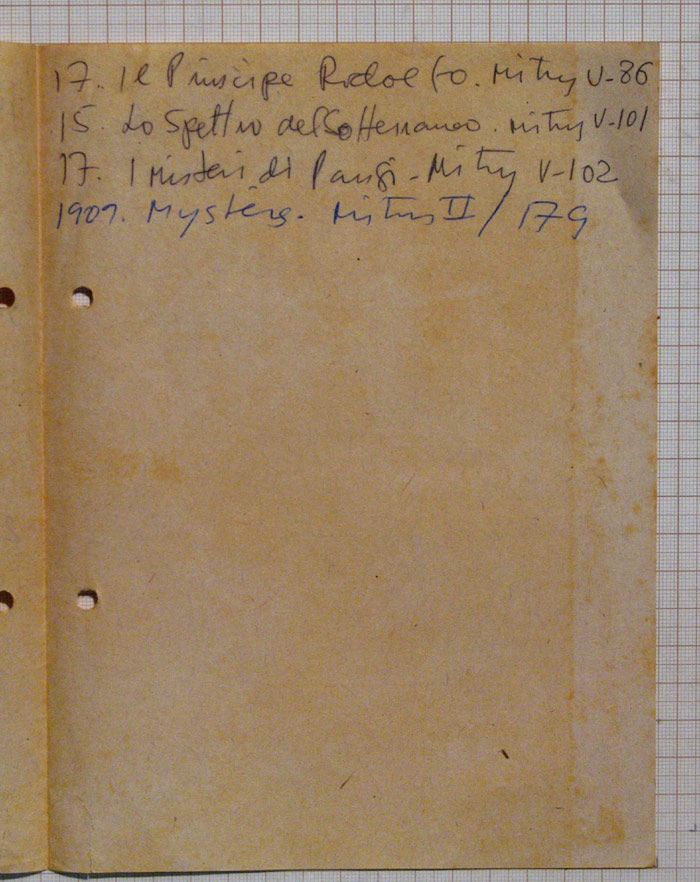 17. Il Principe Rodolfo. Mitry V-86
15. Lo Spettro del Sotterraneo. Mitry V-101
17. I Misteri di Parigi - Mitry V-102
1909. Mystères. Mitry II / 179